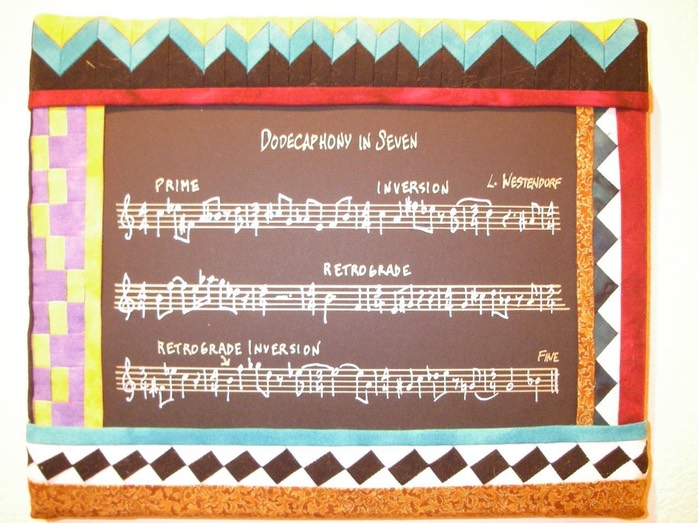 DODECAPHONY IN SEVEN
PRIME INVERSION L. WESTENDORF
RETROGRADE
RETROGRADE INVERSION FINE